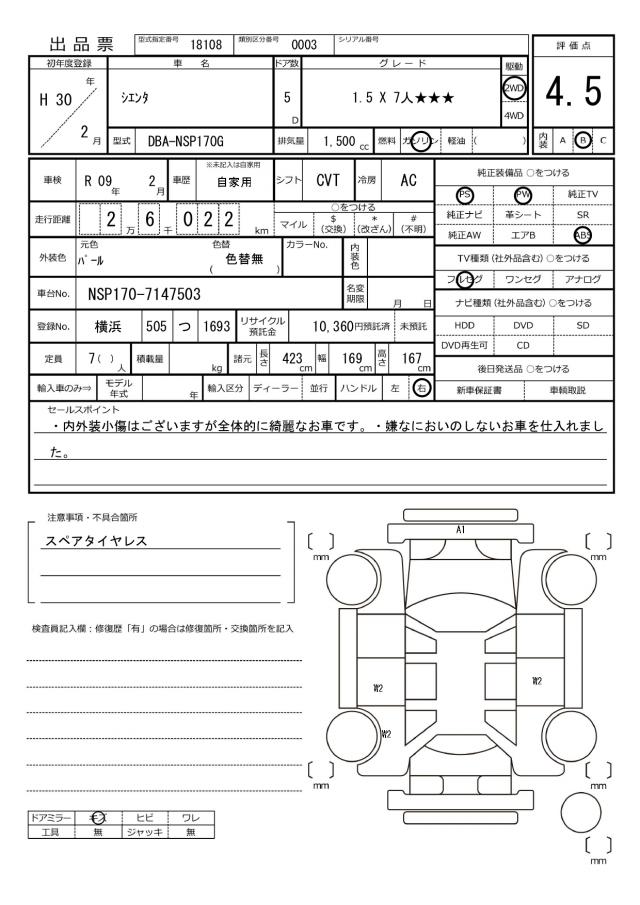 出品票 型式指定番号 18108 類別区分番号 0003 シリアル番号
評価点
4.5
内装 A B C
初年度登録 車名 ドア数 グレード 駆動
H 30 年 / 2 月 シエンタ 5 D 1.5 X 7人★★★ 2WD 4WD
型式 DBA-NSP170G 排気量 1,500 cc 燃料 ガソリン 軽油 ( )
車検 R 09 年 2 月 車歴 ※未記入は自家用 自家用 シフト CVT 冷房 AC
走行距離 2 万 6 千 0 2 2 km ○をつける マイル $ (交換) * (改ざん) # (不明)
外装色 元色 パール 色替 ( 色替無 ) カラーNo. 内装色
車台No. NSP170-7147503 名変期限 月 日
登録No. 横浜 505 つ 1693 リサイクル預託金 10,360円預託済 未預託
定員 7( ) 人 積載量 kg 諸元 長さ 423 cm 幅 169 cm 高さ 167 cm
輸入車のみ⇒ モデル年式 年 輸入区分 ディーラー 並行 ハンドル 左 右
純正装備品 ○をつける
PS PW 純正TV
純正ナビ 革シート SR
純正AW エアB ABS
TV種類 (社外品含む) ○をつける
フルセグ ワンセグ アナログ
ナビ種類 (社外品含む) ○をつける
HDD DVD SD
DVD再生可 CD
後日発送品 ○をつける
新車保証書 車輌取説
セールスポイント
・内外装小傷はございますが全体的に綺麗なお車です。・嫌なにおいのしないお車を仕入れまし
た。
注意事項・不具合箇所
スペアタイヤレス
検査員記入欄：修復歴「有」の場合は修復箇所・交換箇所を記入
A1
mm mm
W2 W2
W2
mm mm
mm
ドアミラー キズ ヒビ ワレ
工具 無 ジャッキ 無